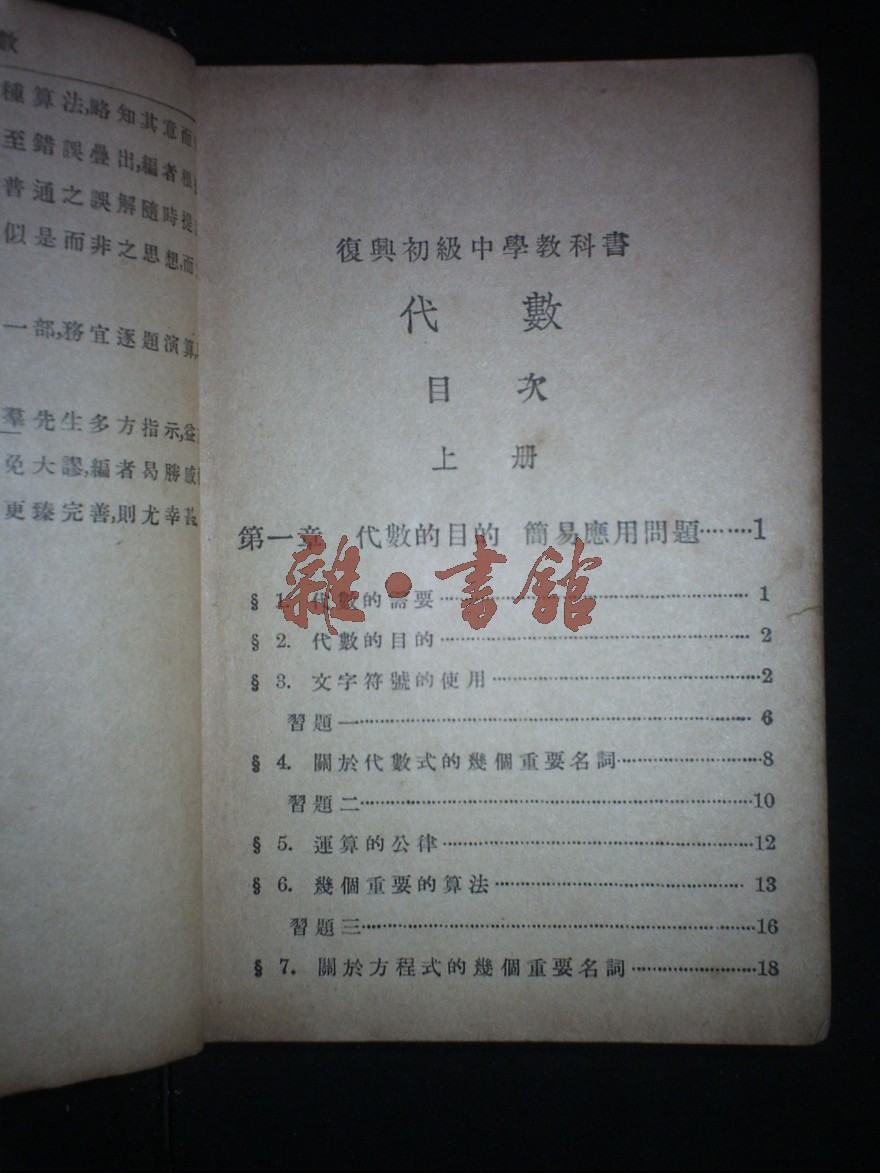 數
種算法,略知其意而
至錯誤疊出,編者根
普通之誤解隨時提
似是而非之思想,而
一部,務宜逐題演算,
羣先生多方指示,益
免大謬,編者曷勝感
更臻完善,則尤幸甚
復興初級中學教科書
代 數
目 次
上 册
第一章 代數的目的 簡易應用問題········1
§ 1. 代數的需要········1
§ 2. 代數的目的········2
§ 3. 文字符號的使用········2
習題一········6
§ 4. 關於代數式的幾個重要名詞········8
習題二········10
§ 5. 運算的公律········12
§ 6. 幾個重要的算法········13
習題三········16
§ 7. 關於方程式的幾個重要名詞········18
雜·書館